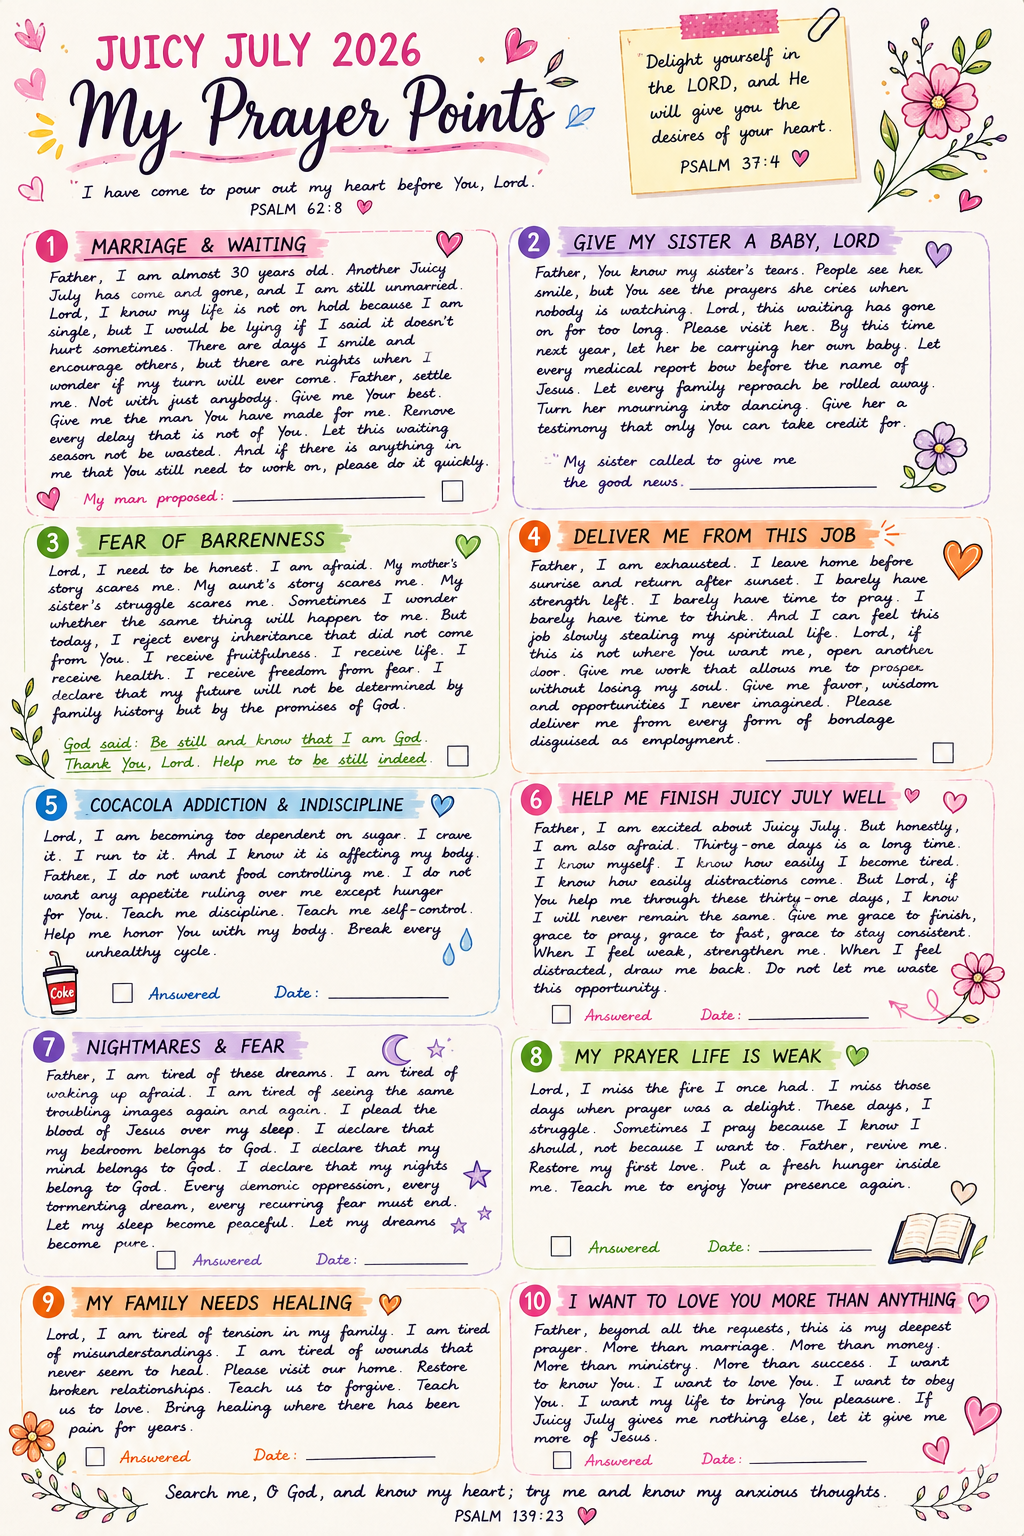 JUICY JULY 2026
My Prayer Points
"I have come to pour out my heart before You, Lord."
PSALM 62:8
Delight yourself in
the LORD, and He
will give you the
desires of your heart.
PSALM 37:4
1 MARRIAGE & WAITING
Father, I am almost 30 years old. Another Juicy
July has come and gone, and I am still unmarried.
Lord, I know my life is not on hold because I am
single, but I would be lying if I said it doesn't
hurt sometimes. There are days I smile and
encourage others, but there are nights when I
wonder if my turn will ever come. Father, settle
me. Not with just anybody. Give me Your best.
Give me the man You have made for me. Remove
every delay that is not of You. Let this waiting
season not be wasted. And if there is anything in
me that You still need to work on, please do it quickly.
My man proposed:
2 GIVE MY SISTER A BABY, LORD
Father, You know my sister's tears. People see her
smile, but You see the prayers she cries when
nobody is watching. Lord, this waiting has gone
on for too long. Please visit her. By this time
next year, let her be carrying her own baby. Let
every medical report bow before the name of
Jesus. Let every family reproach be rolled away.
Turn her mourning into dancing. Give her a
testimony that only You can take credit for.
"My sister called to give me
the good news.
3 FEAR OF BARRENNESS
Lord, I need to be honest. I am afraid. My mother's
story scares me. My aunt's story scares me. My
sister's struggle scares me. Sometimes I wonder
whether the same thing will happen to me. But
today, I reject every inheritance that did not come
from You. I receive fruitfulness. I receive life. I
receive health. I receive freedom from fear. I
declare that my future will not be determined by
family history but by the promises of God.
God said: Be still and know that I am God.
Thank You, Lord. Help me to be still indeed.
4 DELIVER ME FROM THIS JOB
Father, I am exhausted. I leave home before
sunrise and return after sunset. I barely have
strength left. I barely have time to pray. I
barely have time to think. And I can feel this
job slowly stealing my spiritual life. Lord, if
this is not where You want me, open another
door. Give me work that allows me to prosper
without losing my soul. Give me favor, wisdom
and opportunities I never imagined. Please
deliver me from every form of bondage
disguised as employment.
5 COCACOLA ADDICTION & INDISCIPLINE
Lord, I am becoming too dependent on sugar. I crave
it. I run to it. And I know it is affecting my body.
Father, I do not want food controlling me. I do not
want any appetite ruling over me except hunger
for You. Teach me discipline. Teach me self-control.
Help me honor You with my body. Break every
unhealthy cycle.
Coke
Answered Date:
6 HELP ME FINISH JUICY JULY WELL
Father, I am excited about Juicy July. But honestly,
I am also afraid. Thirty-one days is a long time.
I know myself. I know how easily I become tired.
I know how easily distractions come. But Lord, if
You help me through these thirty-one days, I know
I will never remain the same. Give me grace to finish,
grace to pray, grace to fast, grace to stay consistent.
When I feel weak, strengthen me. When I feel
distracted, draw me back. Do not let me waste
this opportunity.
Answered Date:
7 NIGHTMARES & FEAR
Father, I am tired of these dreams. I am tired of
waking up afraid. I am tired of seeing the same
troubling images again and again. I plead the
blood of Jesus over my sleep. I declare that
my bedroom belongs to God. I declare that my
mind belongs to God. I declare that my nights
belong to God. Every demonic oppression, every
tormenting dream, every recurring fear must end.
Let my sleep become peaceful. Let my dreams
become pure.
Answered Date:
8 MY PRAYER LIFE IS WEAK
Lord, I miss the fire I once had. I miss those
days when prayer was a delight. These days, I
struggle. Sometimes I pray because I know I
should, not because I want to. Father, revive me.
Restore my first love. Put a fresh hunger inside
me. Teach me to enjoy Your presence again.
Answered Date:
9 MY FAMILY NEEDS HEALING
Lord, I am tired of tension in my family. I am tired
of misunderstandings. I am tired of wounds that
never seem to heal. Please visit our home. Restore
broken relationships. Teach us to forgive. Teach
us to love. Bring healing where there has been
pain for years.
Answered Date:
10 I WANT TO LOVE YOU MORE THAN ANYTHING
Father, beyond all the requests, this is my deepest
prayer. More than marriage. More than money.
More than ministry. More than success. I want
to know You. I want to love You. I want to obey
You. I want my life to bring You pleasure. If
Juicy July gives me nothing else, let it give me
more of Jesus.
Answered Date:
Search me, O God, and know my heart; try me and know my anxious thoughts.
PSALM 139:23